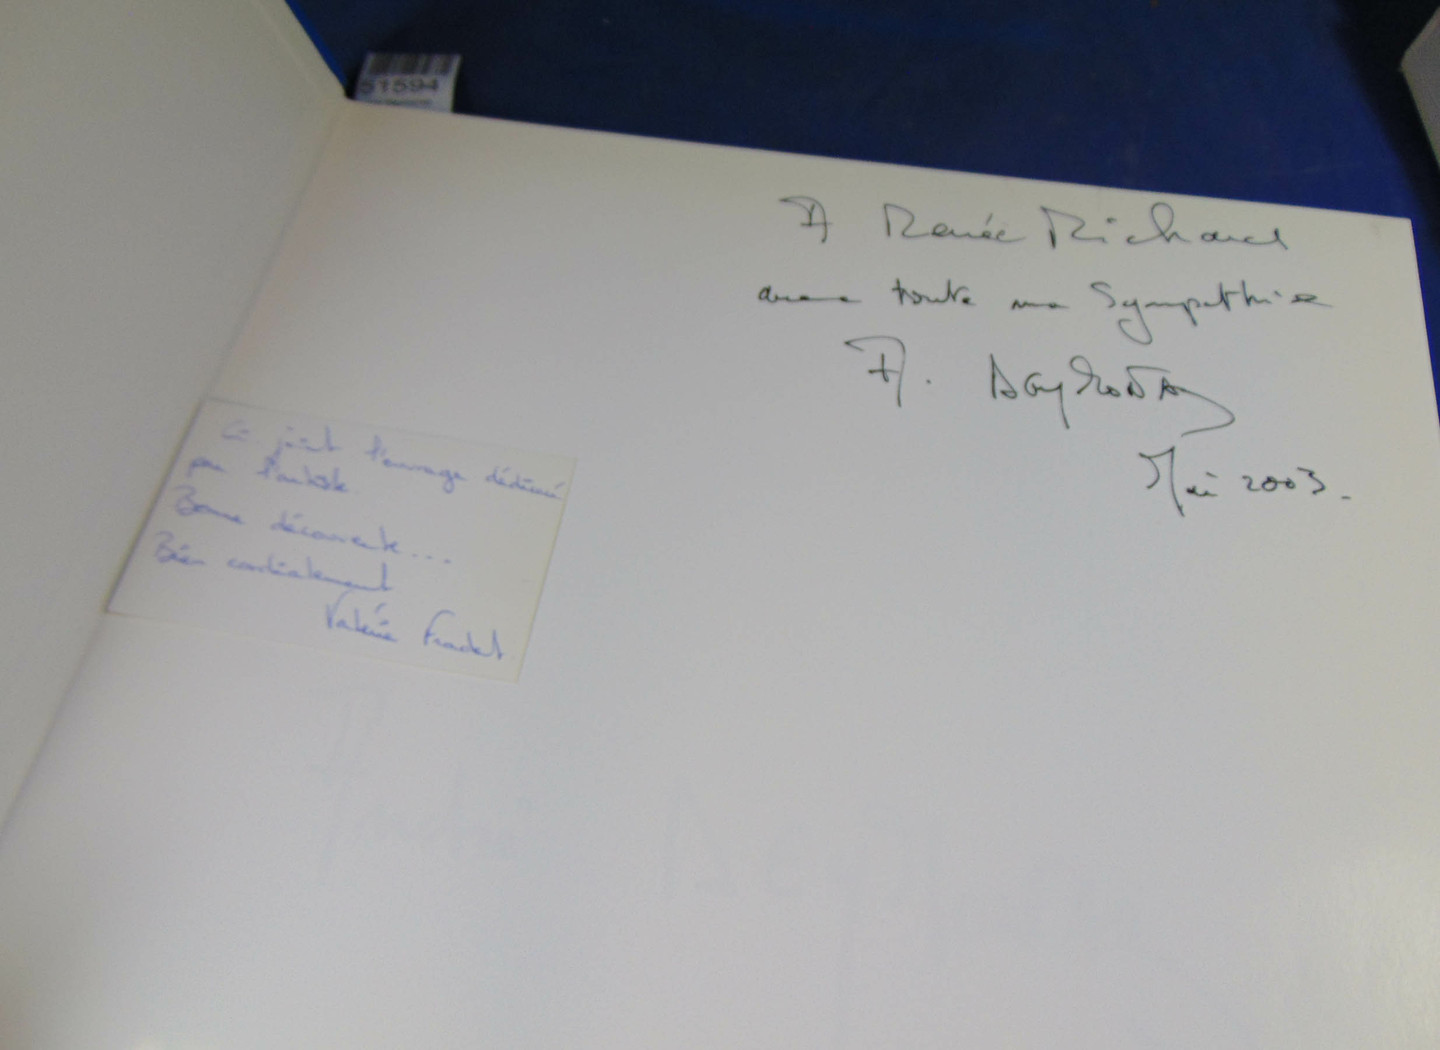 51594
A Renée Richard
avec toute ma Sympathie
A.
Mai 2003.
Ci joint l'ouvrage dédicacé
par l'artiste
Bonne découverte...
Bien cordialement
Valérie Fradet